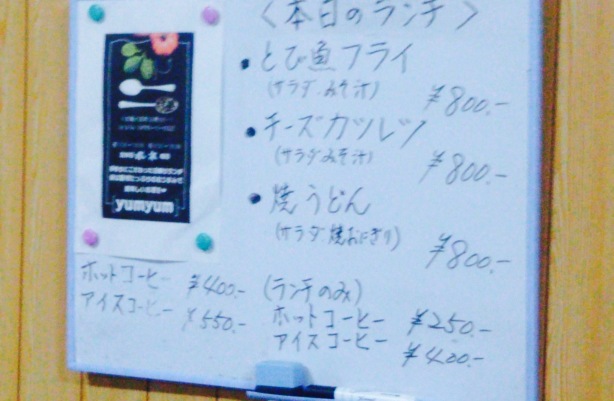 <本日のランチ>
・とび魚フライ
(サラダ・みそ汁)
¥800.-
・チーズカツレツ
(サラダ・みそ汁)
¥800.-
・焼うどん
(サラダ・焼おにぎり)
¥800.-
(ランチのみ)
ホットコーヒー ¥250.-
アイスコーヒー ¥400.-
ホットコーヒー ¥400.-
アイスコーヒー ¥550.-
yumyum